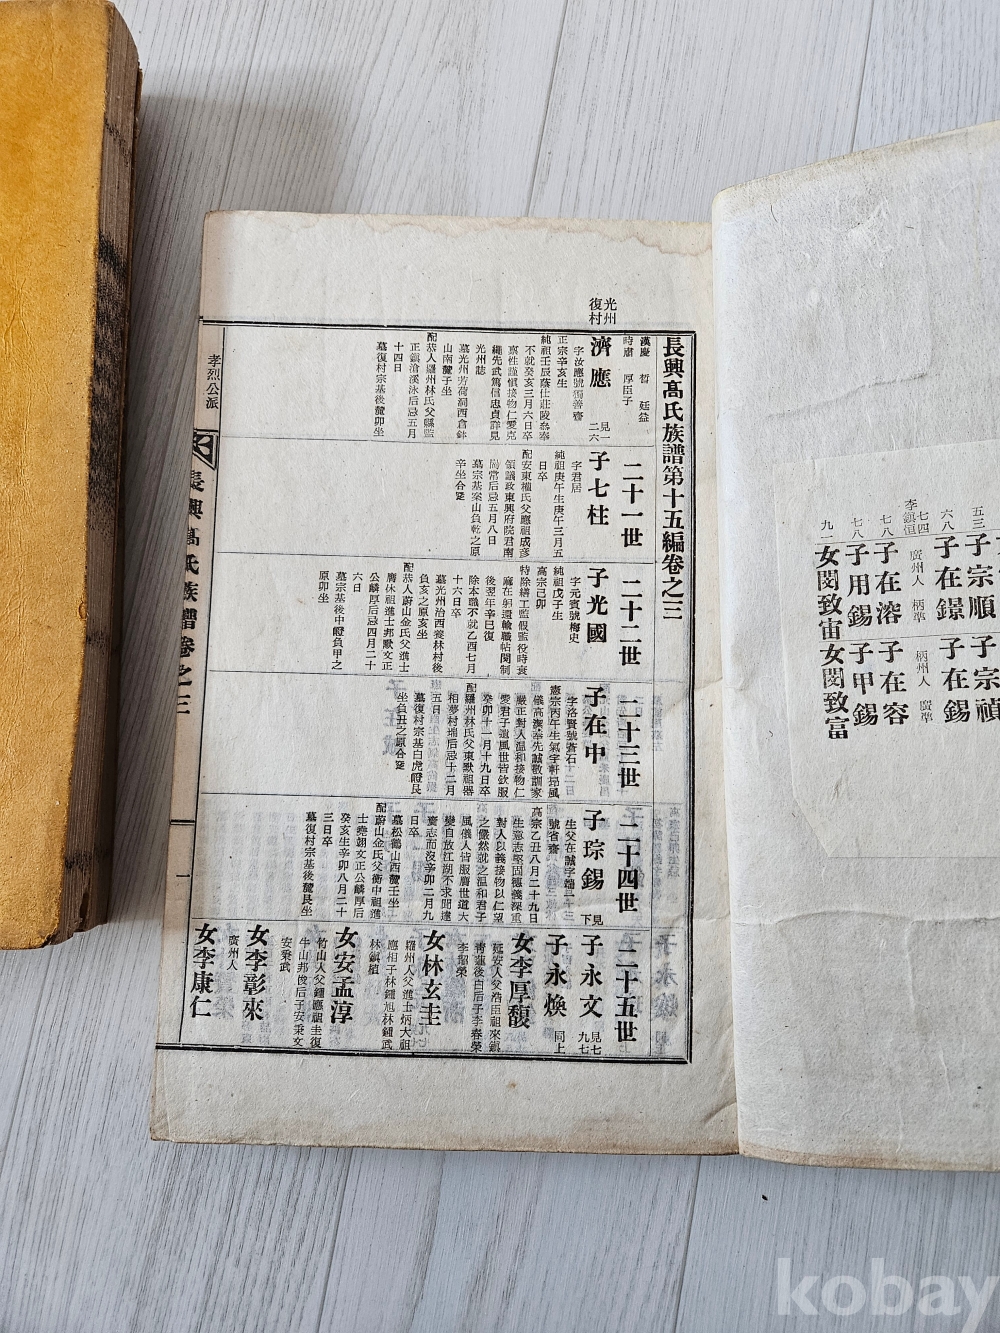 長興髙氏族譜第十五編卷之三
光州
復村
漢慶 晢 廷益
時肅 厚臣子
濟應 見一二六
字汝應號獨善齋
正宗辛亥生
純祖壬辰蔭仕莊陵叅奉
不就癸亥三月六日卒
禀性謹愼接物仁愛克
繩先武篤信忠貞詳見
光州誌
墓光州芳荷洞西倉鉢
山南麓子坐
配恭人羅州林氏父縣監
正鎭滄溪泳后忌五月
十四日
墓復村宗基後麓卯坐
二十一世
子七柱
字君居
純祖庚午生庚午三月五
日卒
配安東權氏父應祖成彦
領議政東興府院君南
尙常后忌五月八日
墓宗基案山負乾之原
辛坐合窆
二十二世
子光國
字元賓號梅史
純祖戊子生
高宗己卯
特除繕工監假監役時衰
麻在躬還輸職帖関制
後翌年辛巳復
除本職不就乙酉七月
十六日卒
墓光州治西養林村後
負亥之原亥坐
配恭人蔚山金氏父進士
膺休祖進士邦默文正
公麟厚后忌四月二十
六日
墓宗基後中磴負甲之
原卯坐
二十三世
子在中
字洛賢號蒼石
憲宗丙午生氣宇軒昂風
儀高潔奉先誠敬訓家
嚴正對人温和接物仁
愛君子遺風世皆欽服
癸卯十一月十九日卒
配羅州林氏父東默祖器
相夢村㙐后忌十二月
五日
墓復村宗基白虎磴艮
坐負丑之原合窆
二十四世
子琮錫 見下
生父在誠字㙐三
號省齋
高宗乙丑八月二十九日
生意志堅固德義深重
對人以義接物以仁望
之儼然就之温和君子
風儀人皆服膺世道大
變自放江湖不求聞達
齎志而沒辛卯二月九
日卒
墓松鶴山西麓壬坐
配蔚山金氏父衡中祖進
士堯翊文正公麟厚后
癸亥生辛卯八月二十
三日卒
墓復村宗基後麓艮坐
二十五世
子永文 見七九七
子永煥 同上
女李厚馥
延安人父浩臣祖來鎭
靑蓮後白后子李春榮
李昭榮
女林玄圭
羅州人父進士炳大祖
應相子林鍾旭林鍾武
林鎭植
女安孟淳
竹山人父鍾應祖圭復
牛山邦俊后子安秉文
安秉武
女李彰來
廣州人
女李康仁
孝烈公派
長興髙氏族譜卷之三
一
五三
子宗順
子宗禎
六八
子在鐛
子在錫
李鎭恒
七四
廣州人 柄準
柄州人 廣準
七八
子在溶
子在容
七八
子用錫
子甲錫
九一
女閔致宙
女閔致富
kobay